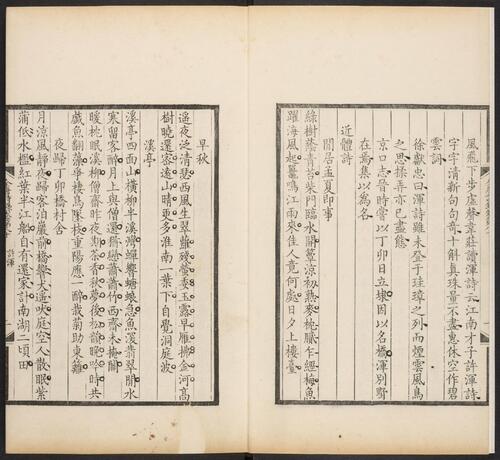 風飛下步虛聲韋莊讀渾詩云江南才子許渾詩
字字清新句句奇十斛真珠量不盡惠休空作碧
雲詞
徐獻忠曰渾詩雖未登于珪璋之列而煙雲風鳥
之思弄亦已盡態
京口志晉時嘗以丁卯日立埭因以名橋渾別墅
在焉集以爲名
近體詩
閒居孟夏即事
綠樹蔭青苔柴門臨水開簟涼初熟麥枕膩乍經梅魚
躍海風起鼉鳴江雨來佳人竟何處日夕上樓臺
早秋
遙夜泛清瑟西風生翠蘿殘螢委玉露早雁拂金河高
樹曉還密遠山晴更多淮南一葉下自覺洞庭波
溪亭
溪亭四面山橫柳半溪灣蟬響螳螂急魚深翡翠閒水
寒留客醉月上與僧還猶戀蕭蕭竹西齋未掩關
暖枕眠溪柳僧齋昨夜期茶香秋夢後松韻晚吟時共
戲魚翻藻爭棲鳥墜枝重陽應一醉栽菊助東籬
夜歸丁卯橋村舍
月涼風靜夜歸客泊巖前橋響犬遙吠庭空人散眠紫
蒲低水檻紅葉半江船自有還家計南湖二頃田
許渾